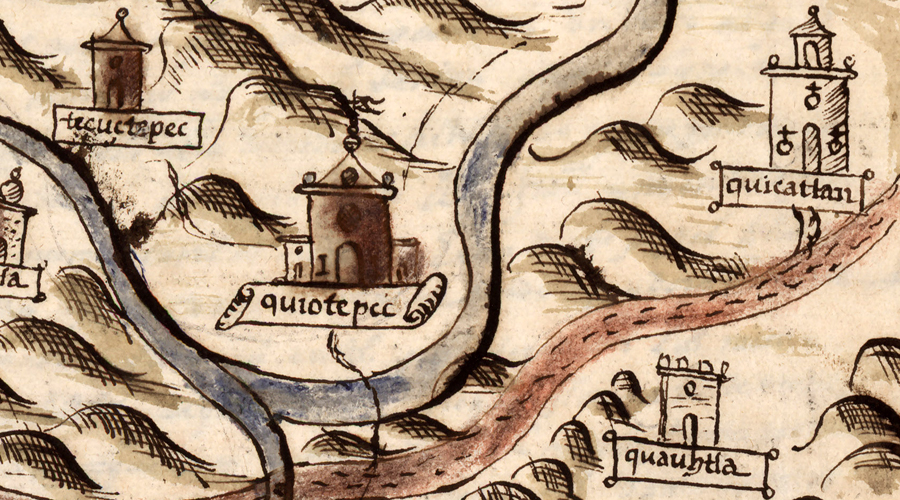 tecuctepec
quicatlan
quiotepec
quauhtla